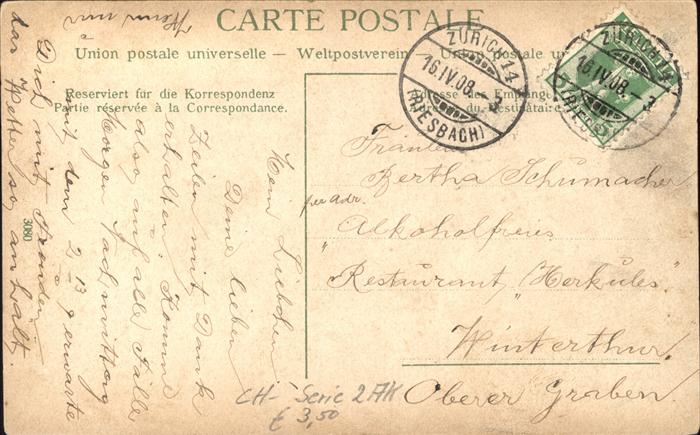 CARTE POSTALE
Union postale universelle — Weltpostverein — Union postale
Reserviert für die Korrespondenz
Partie réservée à la Correspondance.
Adresse des
Adresse du Destinataire
ZÜRICH 14
16.IV.08.
3
(RIESBACH)
ZÜRICH 14
16.IV.08.
3
5
Fräulein
Bertha Schumacher
per Adr.
"Alkoholfreies
Restaurant, "Herkules"
Winterthur.
Oberer Graben.
Mein Liebchen!
Deine lieben
Zeilen mit Dank
erhalten. Komme
also auf alle Fälle
Morgen Nachmittag
mit dem 2 13 & erwarte
Dich mit Freuden
das Wetter so anhält.
Wenn nur
3080
CH- Serie 2 AK
€ 3,50